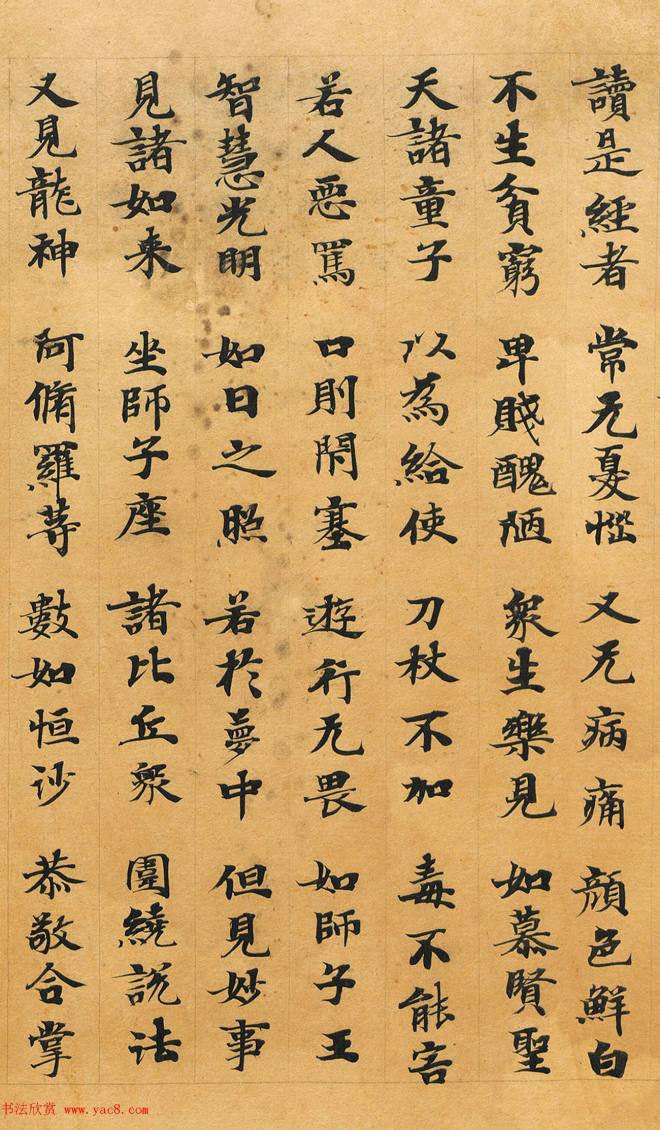 讀是經者常无憂惱又无病痛顏色鮮白
不生貧窮卑賤醜陋衆生樂見如慕賢聖
天諸童子以為給使刀杖不加毒不能害
若人惡罵口則閇塞遊行无畏如師子王
智慧光明如日之照若於夢中但見妙事
見諸如来坐師子座諸比丘衆圍繞說法
又見龍神阿脩羅等數如恒沙恭敬合掌
书法欣赏 www.yac8.com